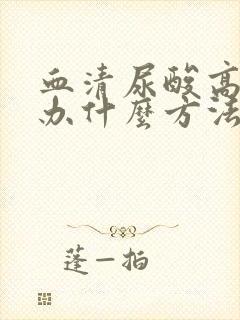 血清尿酸高
办什麼方法
蓬一拍